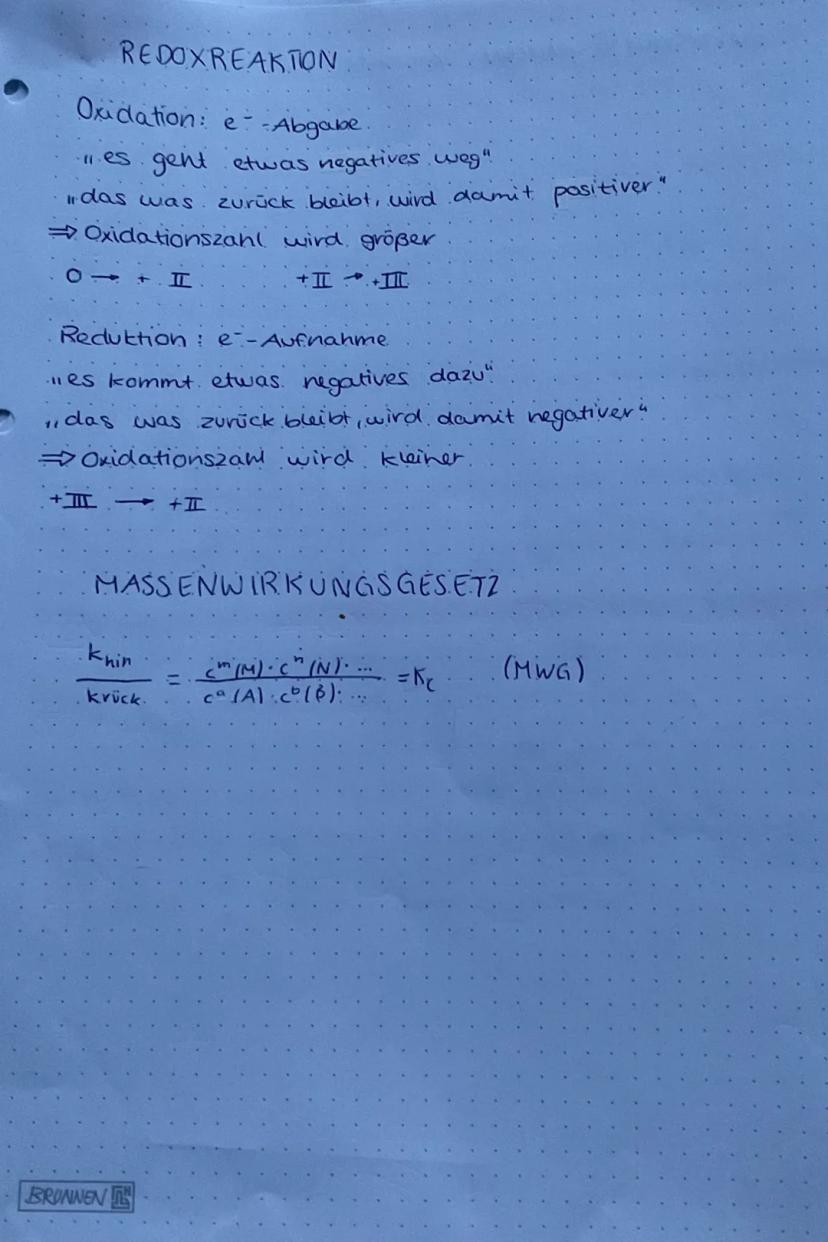 REDOXREAKTION
Oxidation: e⁻-Abgabe
„es geht etwas negatives weg“
„das was zurück bleibt, wird damit positiver“
⇒ Oxidationszahl wird größer
0 → + II +II → +III
Reduktion: e⁻-Aufnahme
„es kommt etwas negatives dazu“
„das was zurück bleibt, wird damit negativer“
⇒ Oxidationszahl wird kleiner
+III → +II
MASSENWIRKUNGSGESETZ
k_hin / k_rück = c^m(M) · c^n(N) · ... / c^a(A) · c^b(B) · ... = K_c (MWG)
BRUNNEN